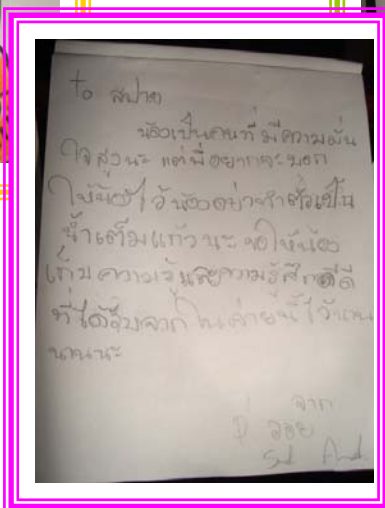 to สปาย
น้องเป็นคนที่มีความมั่น
ใจสูงนะ แต่พี่อยากจะบอก
ให้น้องไว้น้องอย่าทำตัวเป็น
น้ำเต็มแก้วนะ ขอให้น้อง
เก็บความรู้และความรู้สึกดีดี
ที่ได้รับจากในค่ายนี้ไว้นาน
นานนะ
จาก